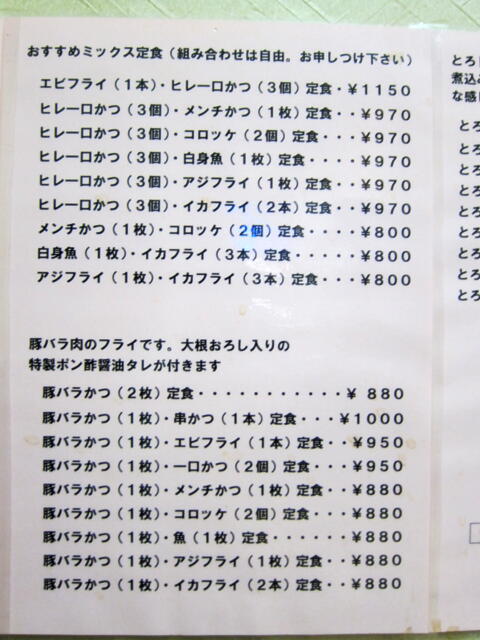 おすすめミックス定食（組み合わせは自由。お申しつけ下さい）
エビフライ（１本）・ヒレ一口かつ（３個）定食・￥１１５０
ヒレ一口かつ（３個）・メンチかつ（１枚）定食・・￥９７０
ヒレ一口かつ（３個）・コロッケ（２個）定食・・￥９７０
ヒレ一口かつ（３個）・白身魚（１枚）定食・・￥９７０
ヒレ一口かつ（３個）・アジフライ（１枚）定食・・￥９７０
ヒレ一口かつ（３個）・イカフライ（２本）定食・・￥９７０
メンチかつ（１枚）・コロッケ（２個）定食・・￥８００
白身魚（１枚）・イカフライ（３本）定食・・￥８００
アジフライ（１枚）・イカフライ（３本）定食・・￥８００
豚バラ肉のフライです。大根おろし入りの
特製ポン酢醤油タレが付きます
豚バラかつ（２枚）定食・・・・・・・・・・・￥ ８８０
豚バラかつ（１枚）・串かつ（１本）定食・・・￥１０００
豚バラかつ（１枚）・エビフライ（１本）定食・・￥９５０
豚バラかつ（１枚）・一口かつ（２個）定食・・・￥９５０
豚バラかつ（１枚）・メンチかつ（１枚）定食・・￥８８０
豚バラかつ（１枚）・コロッケ（２個）定食・・・￥８８０
豚バラかつ（１枚）・魚（１枚）定食・・・・・・￥８８０
豚バラかつ（１枚）・アジフライ（１枚）定食・・￥８８０
豚バラかつ（１枚）・イカフライ（２本）定食・・￥８８０
とろ
煮込
な感
とろ
とろ
とろ
とろ
とろ
とろ
とろ
とろ
とろ